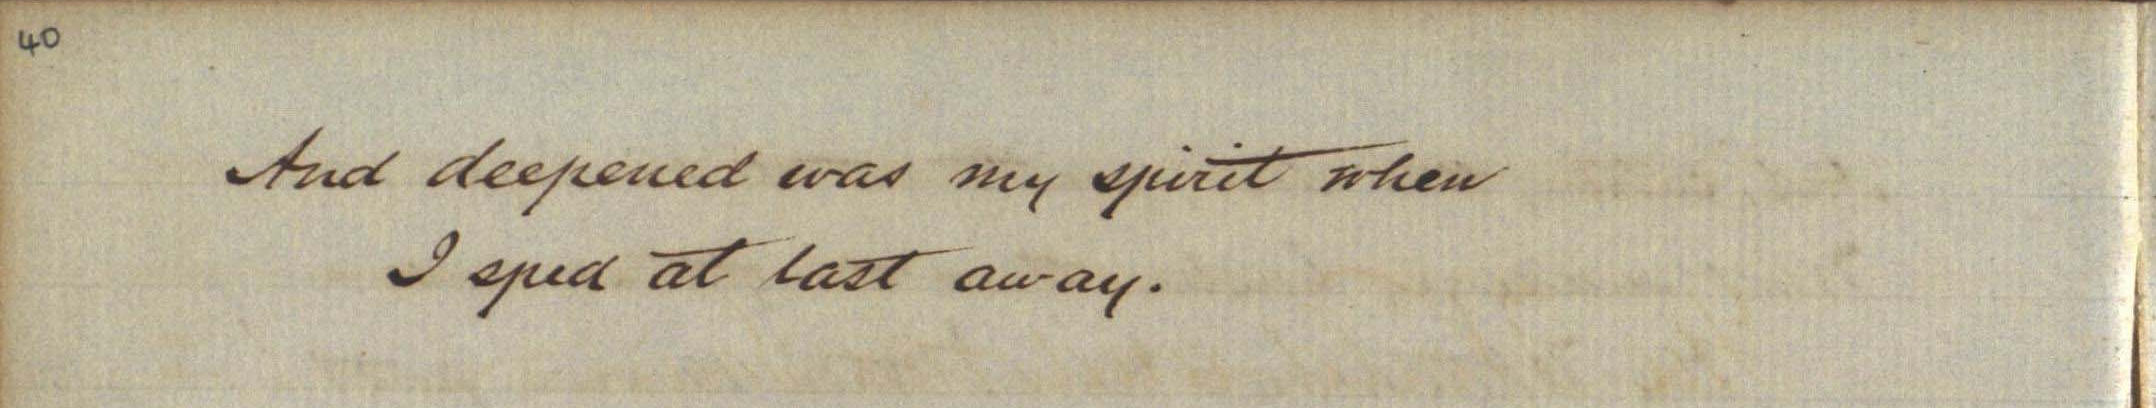 40
And deepened was my spirit when
I sped at last away.